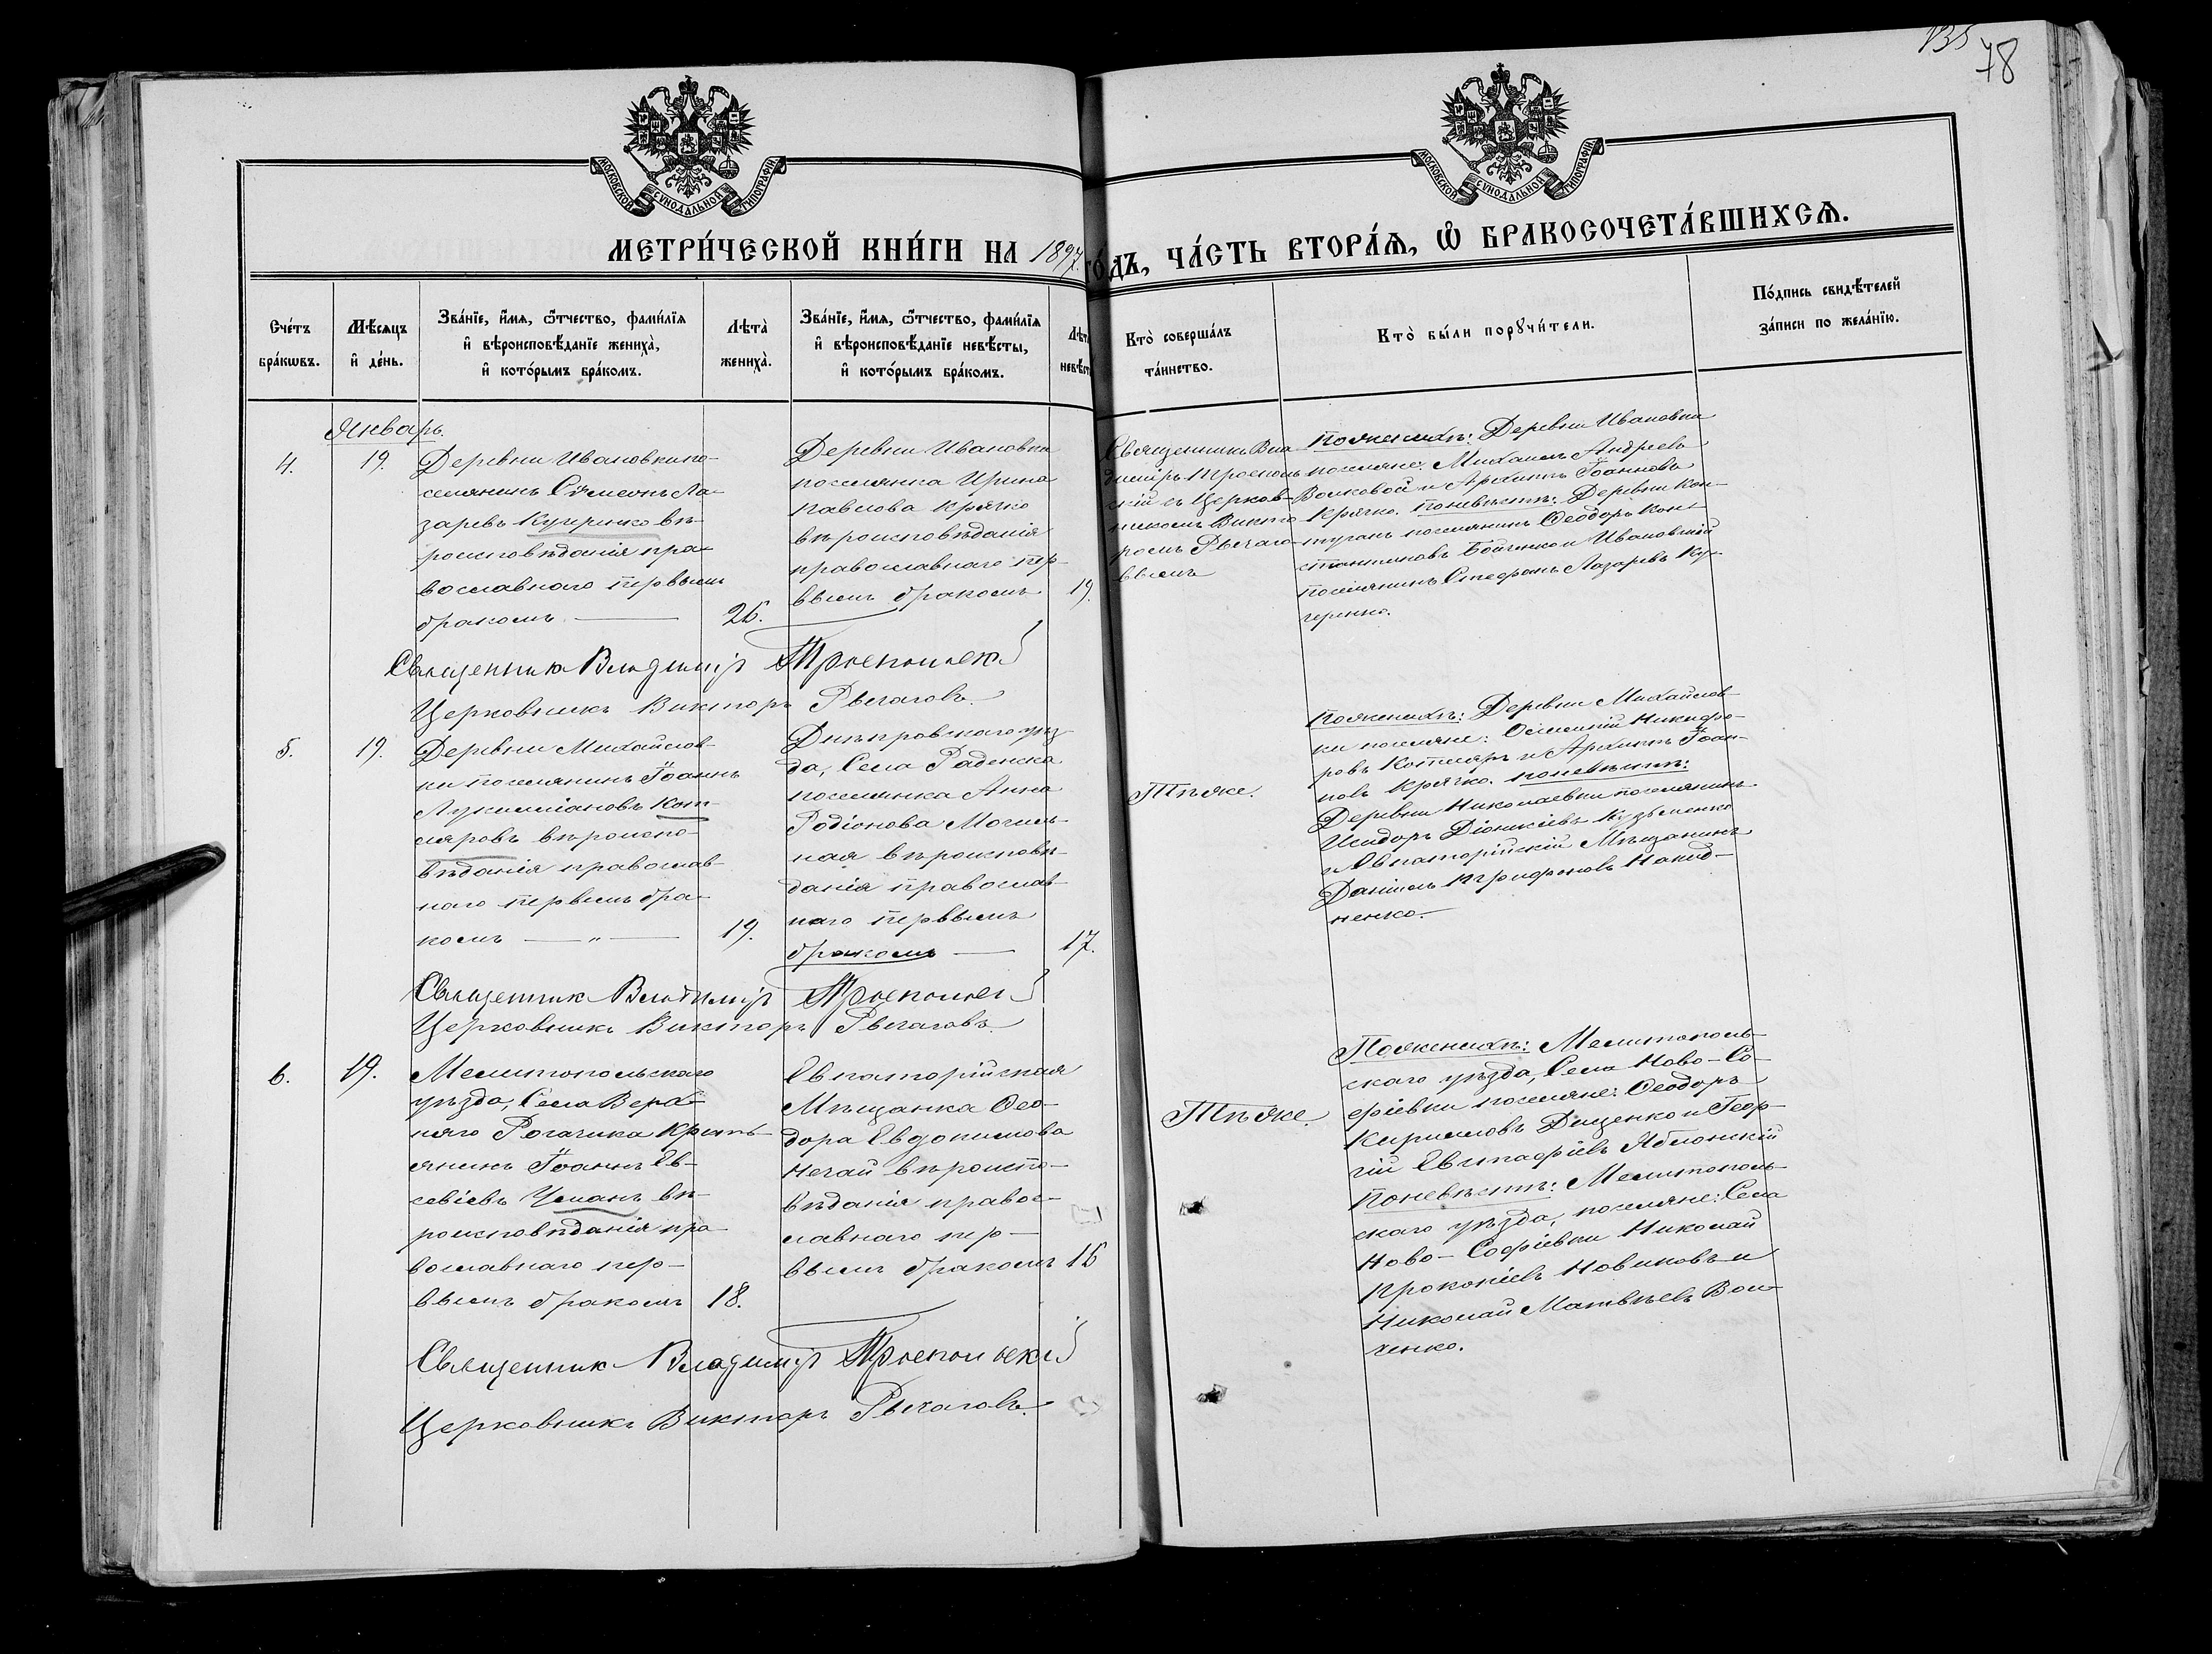 135
78
МОСКОВСКОЙ СѴНОДАЛЬНОЙ ТИПОГРАФІИ
МОСКОВСКОЙ СѴНОДАЛЬНОЙ ТИПОГРАФІИ
МЕТРИ́ЧЕСКОЙ КНИ́ГИ НА 1897 ГО́ДЪ, ЧА́СТЬ ВТОРА́Ѧ, Ѽ БРАКОСОЧЕТА́ВШИХСѦ.
Сче́тъ
бра́кѡвъ.
Мѣ́сѧцъ
и҆ де́нь.
Зва́нїе, и҆́мѧ, ѻ҆́тчество, фамѝлїѧ
и҆ вѣроисповѣ́данїе жениха̀,
и҆ кото́рымъ бра́комъ.
Лѣта̀
жениха̀.
Зва́нїе, и҆́мѧ, ѻ҆́тчество, фамѝлїѧ
и҆ вѣроисповѣ́данїе невѣ́сты,
и҆ кото́рымъ бра́комъ.
Лѣта
невѣст
Кто̀ соверша́лъ
та́инство.
Кто̀ бы́ли порꙋчи́тели.
По́дпись свидѣ́телей
за́писи по жела́нїю.
Январь.
4.
19.
Деревни Ивановки по-
селянинъ Сѵмеонъ Ла-
заревъ Кучеренко вѣ-
роисповѣданія пра-
вославнаго первымъ
бракомъ
26.
Деревни Ивановки
поселянка Ирина
Павлова Крячко
вѣроисповѣданія
православнаго пер-
вымъ бракомъ
19.
Священникъ Вла-
димиръ Троеполь-
скій съ Церков-
никомъ Викто-
ромъ Рычаго-
вымъ
По женихѣ: Деревни Ивановки
поселяне: Михаилъ Андреевъ
Волковой и Архипъ Іоанновъ
Крячко. По невѣстѣ: Деревни Кон-
туганъ поселянинъ Ѳеодоръ Кон-
стантиновъ Бойченко и Ивановскій
поселянинъ Стефанъ Лазаревъ Ку-
черенко.
Священникъ Владимиръ Троепольскій
Церковникъ Викторъ Рычаговъ.
5.
19.
Деревни Михайлов-
ки поселянинъ Іоаннъ
Лукилліановъ Кот-
ляровъ вѣроиспо-
вѣданія православ-
наго первымъ бра-
комъ — „ —
19.
Днѣпровскаго уѣз-
да, Села Раденска
поселянка Анна
Родіонова Могиль-
ная вѣроисповѣ-
данія православ-
наго первымъ
бракомъ
17.
Тѣ же.
По женихѣ: Деревни Михайлов-
ки поселяне: Никифо-
ровъ Котляръ и Архипъ Іоан-
новъ Крячко. По невѣстѣ:
Деревни Николаевки поселянинъ
Исидоръ Діонисіевъ Кузьменко
и Евпаторійскій Мѣщанинъ
Даніилъ Трифоновъ Накид-
ненко.
Священникъ Владимиръ Троепольскій
Церковникъ Викторъ Рычаговъ.
6.
19.
Мелитопольскаго
уѣзда, Села Верх-
няго Рогачика Крестъ-
янинъ Іоаннъ Ев-
севіевъ Усманъ вѣ-
роисповѣданія пра-
вославнаго пер-
вымъ бракомъ
18.
Евпаторійская
Мѣщанка Ѳео-
дора Евдокимова
Нечай вѣроиспо-
вѣданія правос-
лавнаго пер-
вымъ бракомъ
16
Тѣ же.
По женихѣ: Мелитополь-
скаго уѣзда, Села Ново-Со-
фіевки поселяне: Ѳеодоръ
Кирилловъ Даценко и Геор-
гій Евстафіевъ Яблонскій
По невѣстѣ: Мелитополь-
скаго уѣзда, поселяне: Села
Ново-Софіевки Николай
Прокопіевъ Новиковъ и
Николай Матвѣевъ Вол-
ченко.
Священникъ Владимиръ Троепольскій
Церковникъ Викторъ Рычаговъ.